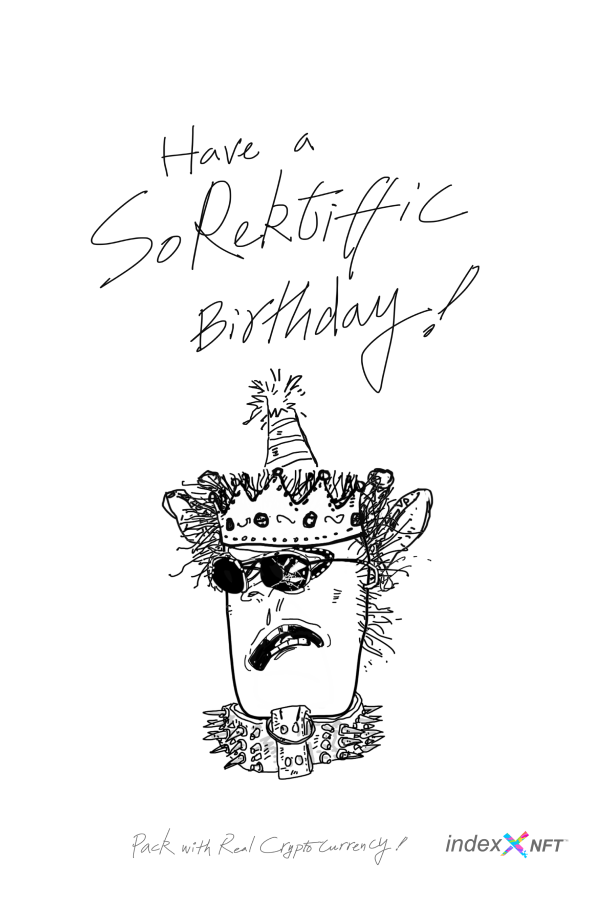 Have a
SoRektiffic
Birthday!
Pack with Real Cryptocurrency!
indexXNFT™